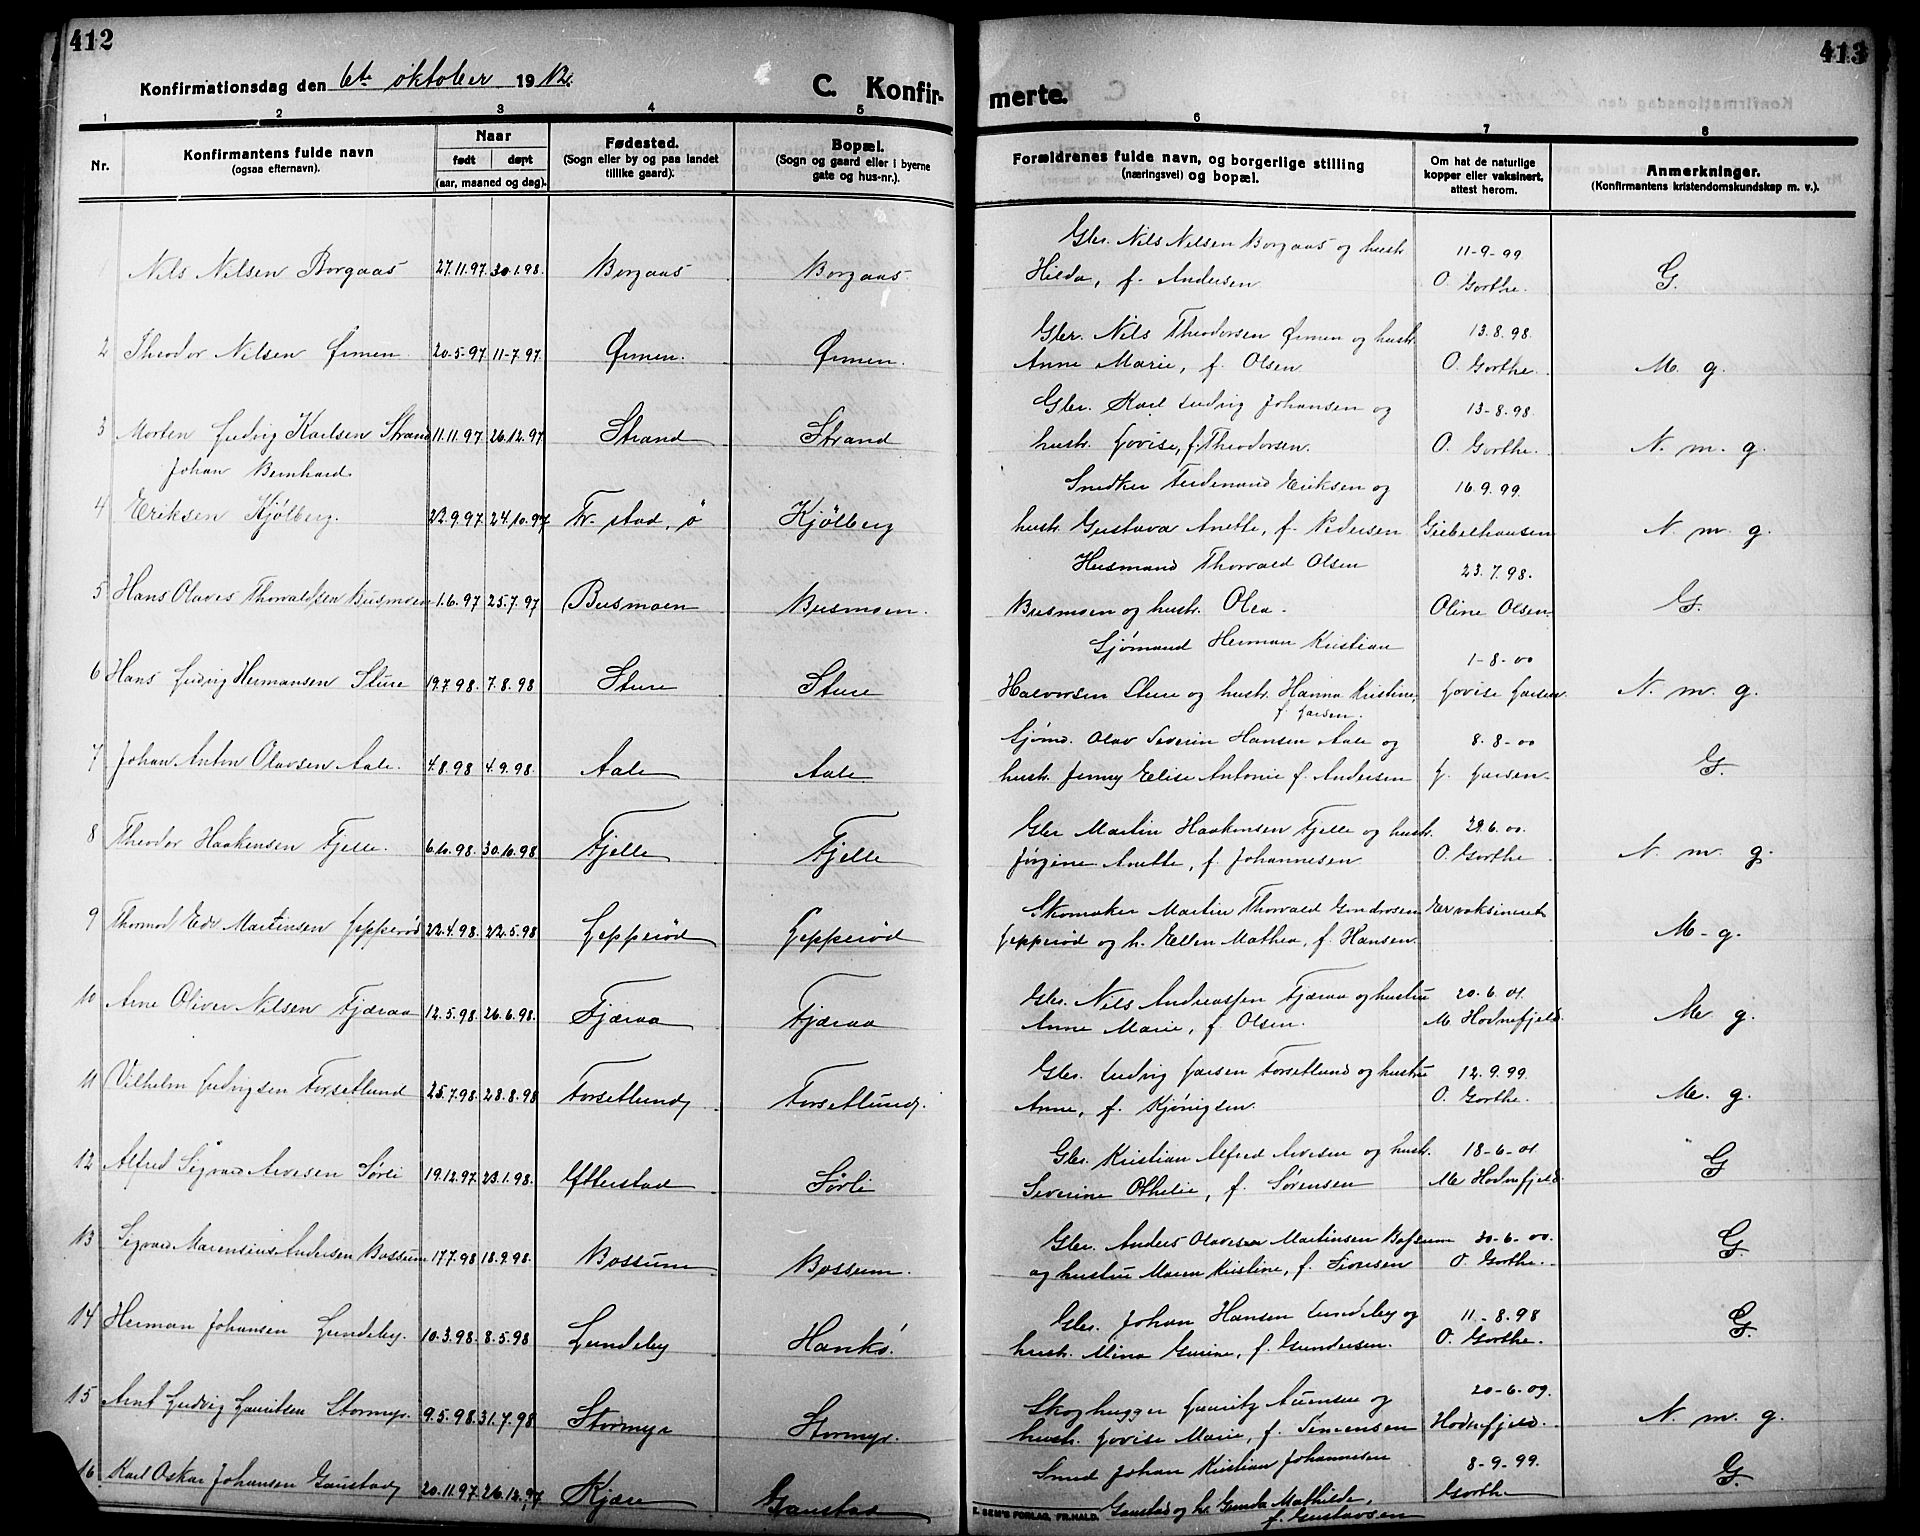 412
413
Konfirmationsdag den 6te oktober 1912.
C. Konfir-
merte.
1 2 3 4 5 6 7 8
Nr.
Konfirmantens fulde navn
(ogsaa efternavn).
Naar
født døpt
(aar, maaned og dag).
Fødested.
(Sogn eller by og paa landet
tillike gaard).
Bopæl.
(Sogn og gaard eller i byerne
gate og hus-nr.).
Forældrenes fulde navn, og borgerlige stilling
(næringsvei) og bopæl.
Om hat de naturlige
kopper eller vaksinert,
attest herom.
Anmerkninger.
(Konfirmantens kristendomskundskap m. v.).
Gbr. Nils Nilsen Borgaas og hustr. 11-9-99
1 Nils Nilsen Borgaas 27.11.97 30.1.98. Borgaas Borgaas Hilda, f. Andersen O. Gorthe. G.
Gbr. Nils Theodorsen Ørmen og hustr. 13.8.98.
2 Theodor Nilsen Ørmen. 20.5.97 11-7.97. Ørmen. Ørmen. Anne Marie, f. Olsen. O. Gorthe. M. g.
Gbr. Karl Ludvig Johansen og 13-8.98.
3 Morten Ludvig Karlsen Strand 11.11.97 26.12.97 Strand Strand hustr. Lovise, f. Theodorsen. O. Gorthe. N. m. g.
Johan Bernhard Snedker Ferdinand Eriksen og 16.9.99.
4 Eriksen Kjølberg. 22.9.97 24.10.97 Fr.stad, ø Kjølberg hustr. Gustava Anette, f. Pedersen Giebelhausen N. m. g.
Husmand Thorvald Olsen 23.7.98.
5 Hans Olaves Thorvaldsen Busmoen 1.6.97 25.7.97 Busmoen Busmoen. Busmoen og hustr. Olea. Oline Olsen G.
Sjømand Herman Kristian 1-8-00
6 Hans Ludvig Hermansen Sture 19.7.98. 7.8.98 Sture Sture Halvorsen Sture og hustr. Hanna Kristine, Lovise Larsen N. m. g.
f. Larsen.
Sjømd. Olav Severin Hansen Aale og 8.8-00
7 Johan Anton Olavsen Aale. 4.8.98 4.9.98. Aale Aale hustr. Jenny Elise Antonie f. Andersen L. Larsen. G.
Gbr Martin Haakensen Fjelle og hustr. 29.6.00.
8 Theodor Haakensen Fjelle. 6.10.98. 30.10.98 Fjelle Fjelle Jørgine Anette, f. Johannesen O. Gorthe N. m. g.
Skomaker Martin Thorvald Er vaksineret
9 Thormod Edv Martinsen Lepperød 22.4.98. 22.5.98 Lepperød Lepperød Lepperød og h. Ellen Mathea, f. Hansen. M. g.
Gbr. Nils Andreassen Fjæraa og hustru 20.6.01.
10 Arne Oliver Nilsen Fjæraa 12.5.98. 26.6.98. Fjæraa Fjæraa Anne Marie, f. Olsen. M. Hodnefjeld. M. g.
Gbr. Ludvig Larsen Torsetlund og hustru 12.9.99.
11 Vilhelm Ludvigsen Torsetlund 25.7.98. 28.8.98 Torsetlund Torsetlund. Anne, f. Kjønigsen. O. Gorthe. M. g.
Gbr. Kristian Alfred Arvesen og hustr. 18-6-01
12 Alfred Sigvard Arvesen Sørli 19.12.97. 23.1.98. Efterstad Sørli Severine Othelie, f. Sørensen M. Hodnefjeld G
Gbr. Anders Olavesen Martinsen Bossum 30-6-00.
13 Sigvard Marensius Andersen Bossum 17.7.98 18.9.98. Bossum Bossum. og hustru Maren Kristine, f. Simensen O. Gorthe. G.
Gbr. Johan Hansen Lundeby og 11.-8.98
14 Herman Johansen Lundeby. 10.3.98. 8.5.98 Lundeby Hankø. hustr. Mina Gurine, f. Gundersen. O. Gorthe. G.
Skoghugger Lauritz og 20-6.09.
15 Arnt Ludvig Lauritsen Stormyr. 9.5.98. 31.7.98 Stormyr Stormyr. hustr. Lovise Marie, f. Simensen Hodnefjeld. N. m. g.
Smed Johan Kristian Johannesen 8-9.99.
16 Karl Oskar Johansen Gaustad 20.11.97. 26.12.97 Kjære Gaustad Gaustad og h. Gunda Mathilde, Gorthe G.
f. Gustavsen
E. SEM'S FORLAG, FR.HALD.